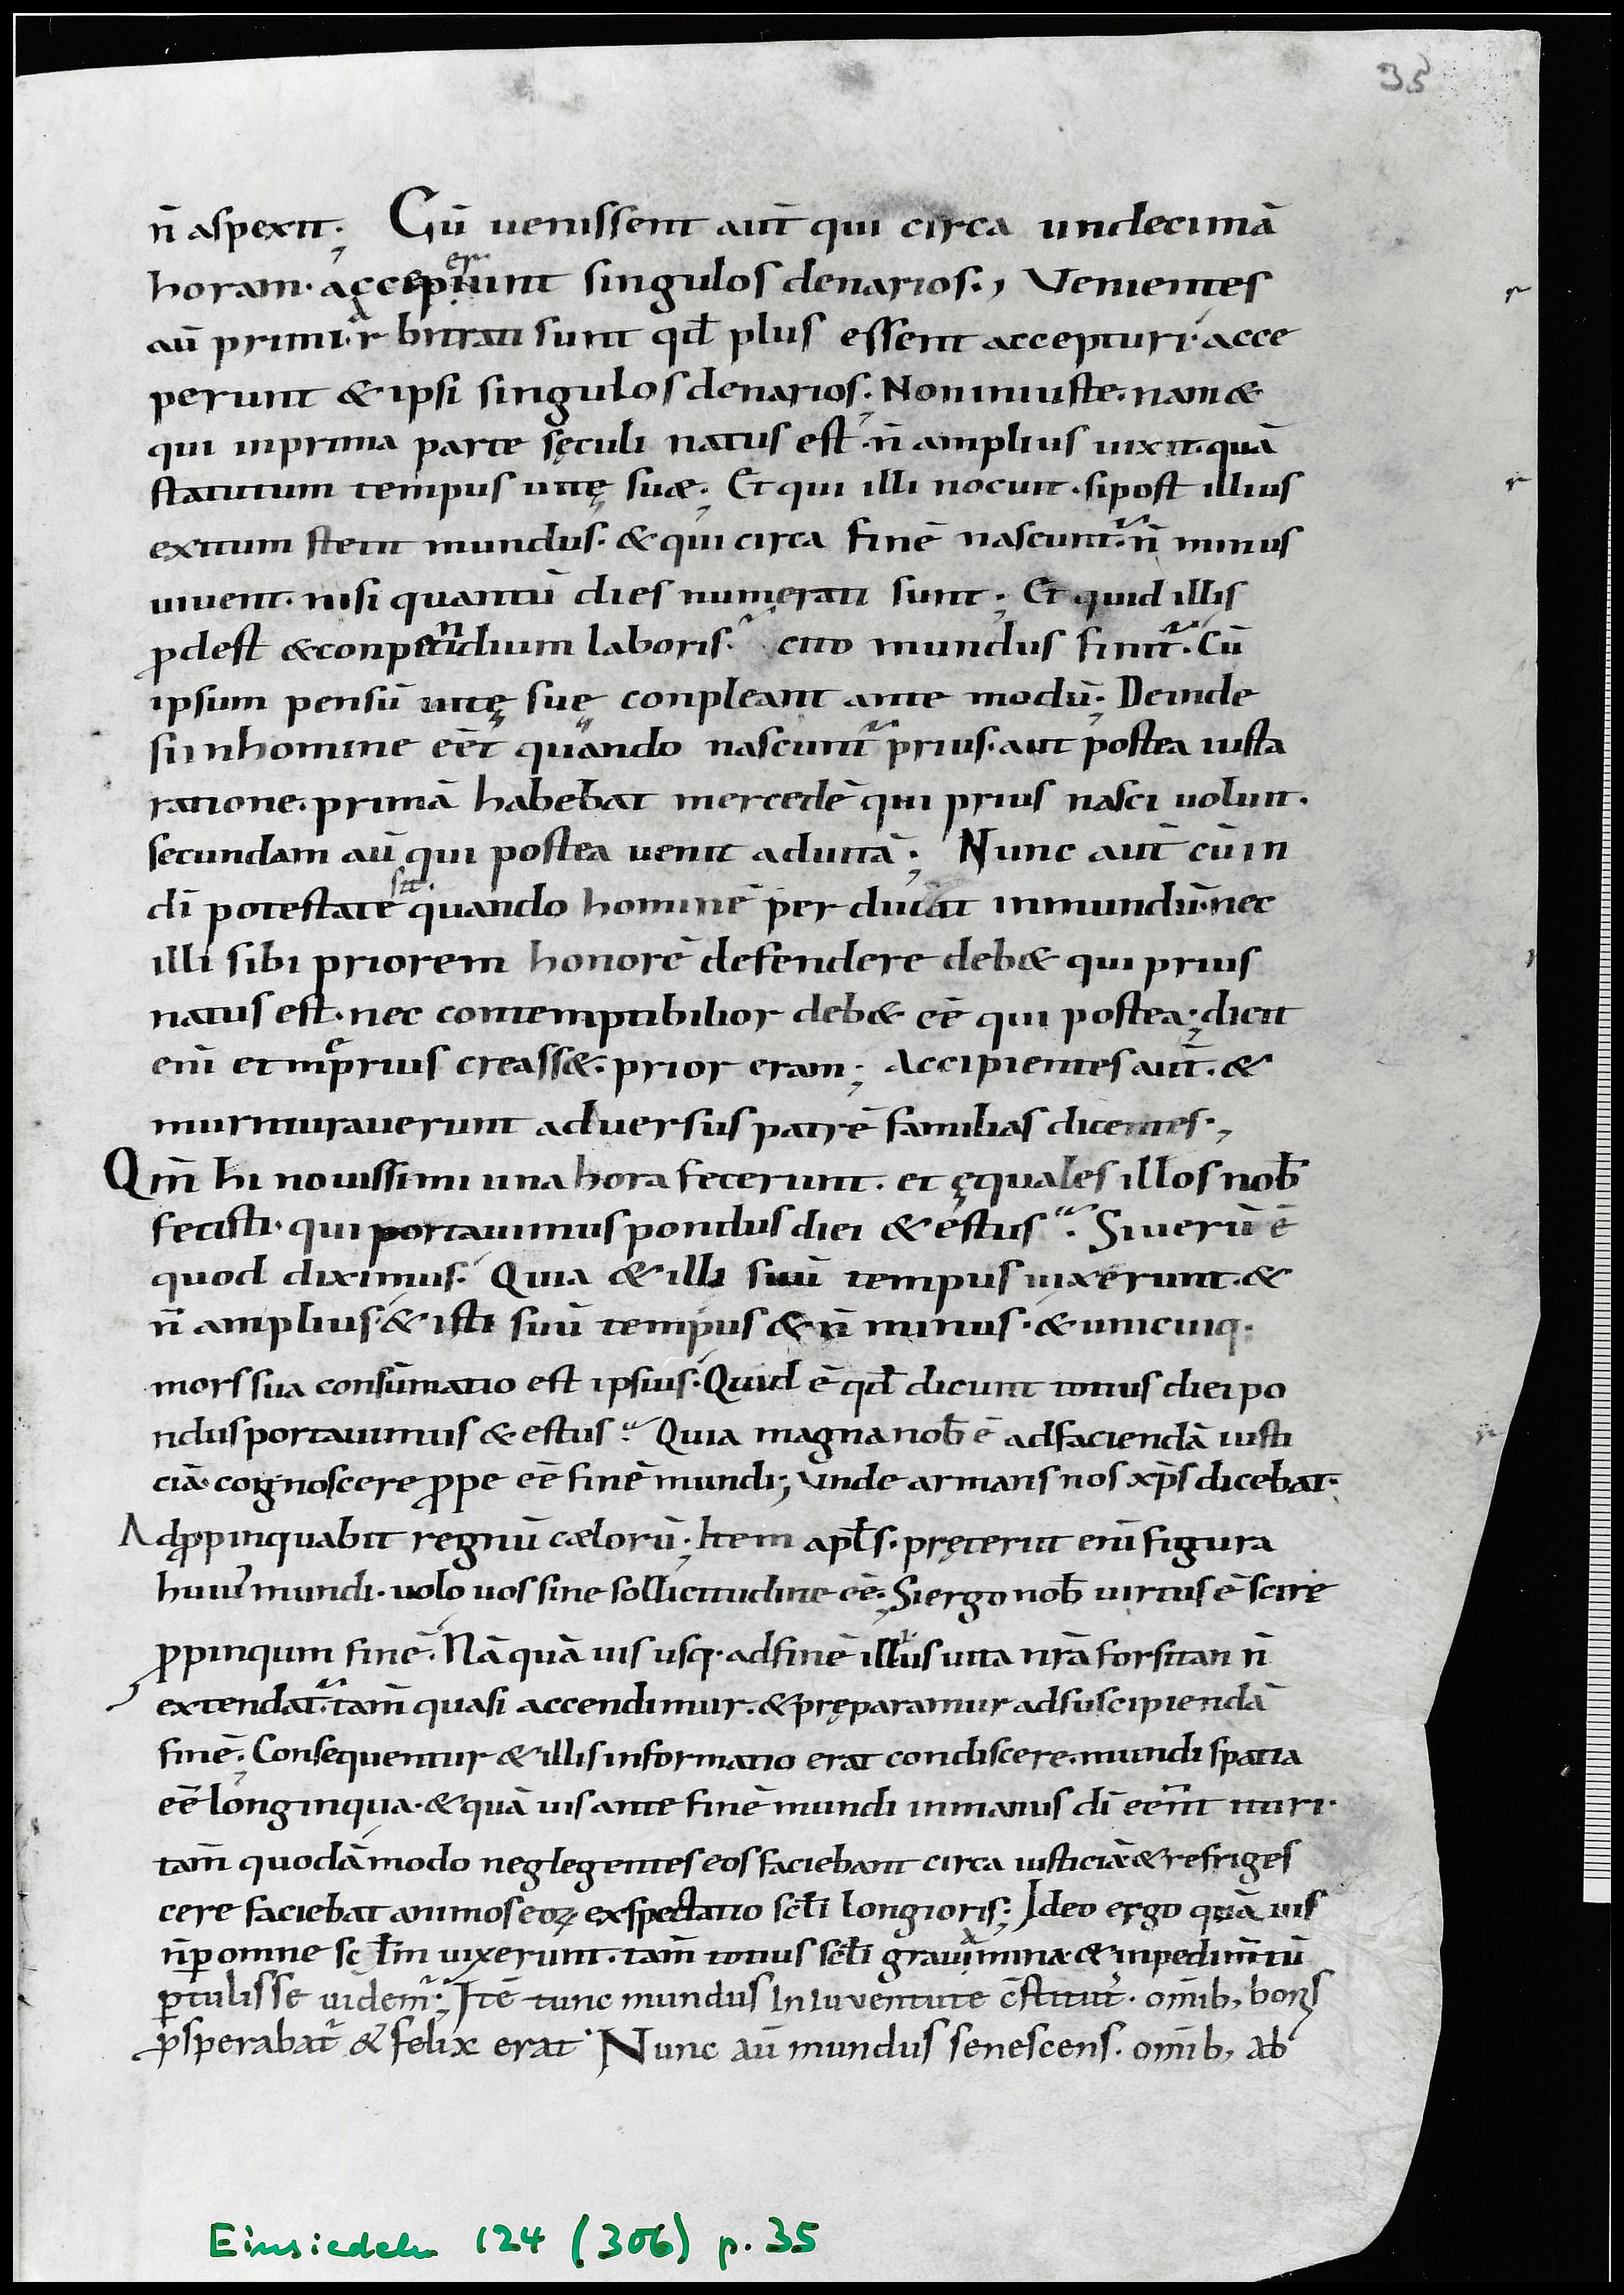 35
n̄ aspexit; Cū uenissent aut̄ qui circa undecimā
horam· acceperunt singulos denarios·, Venientes
aū primi· arbitrati sunt qđ plus essent accepturi· acce
perunt & ipsi singulos denarios; Non iniuste· nam &
qui inprima parte sęculi natus est· n̄ amplius uixit· quā
statutum tempus uitę suæ; Et qui illi nocuit· si post illius
exitum stetit mundus· & qui circa finē nascunt᷒· n̄ minus
uiuent· nisi quantū dies numerati sunt; Et quid illis
ꝓdest & conpendium laboris· cito mundus finit᷒· Cū
ipsum pensū uitę suę conpleant ante modū; Deinde
si inhomine eēt quando nascunt᷒ prius· aut postea iusta
ratione· primā habebat mercedē qui prius nasci uoluit·
secundam aū qui postea uenit aduitā; Nunc aut̄ cū in
dī potestate sit· quando hominē perducat inmundū· nec
illi sibi priorem honorē defendere deb& qui prius
natus est· nec contemptibilior deb& eē qui postea; dicit
enī et me prius creass&· prior eram; Accipientes aut̄· &
murmurauerunt aduersus patrē familias dicentes·,
Qm̄ hi nouissimi una hora fecerunt· et ęquales illos nob̄
fecisti· qui portauimus pondus diei & estus· Si uerū ē
quod diximus· Quia & illi suū tempus uixerunt· &
n̄ amplius· & isti suū tempus & n̄ minus· & unicuiq·
mors sua consūmatio est ipsius· Quid ē qđ dicunt totius diei po
ndus portauimus & estus· Quia magna nob̄ ē adfaciendā iusti
ciā· cognoscere ꝓpe eē finē mundi; Vnde armans nos xp̄s dicebat·
Adꝓpinquabit regnū cælorū; Item apl̄s· pręterit enī figura
huius mundi· uolo uos sine sollicitudine eē; Si ergo nob̄ uirtus ē scire
ꝓpinqum finē· Nā quā uis usq· adfinē illius uita nr̄a forsitan n̄
extendat᷒· tam̄ quasi accendimur· & pręparamur adsuscipiendā
finē; Consequentur & illis informatio erat condiscere· mundi spatia
eē longinqua· & quā uis ante finē mundi inmanus dī eēnt ituri·
tam̄ quodā modo neglegentes eos faciebant circa iusticiā & refriges
cere faciebat animos eoꝝ exspectatio scl̄i longioris; Ideo ergo quā uis
n̄ ꝑ omne scl̄m uixerunt· tam̄ totius scl̄i grauamina & inpedim̄tū
ꝑtulisse uidem᷒; Itē tunc mundus In Iuventute c̄stitut᷒· om̄ib, bonis
ꝓsperabat᷒ & felix erat· Nunc aū mundus senescens· om̄ib, ab
Einsiedeln 124 (306) p. 35